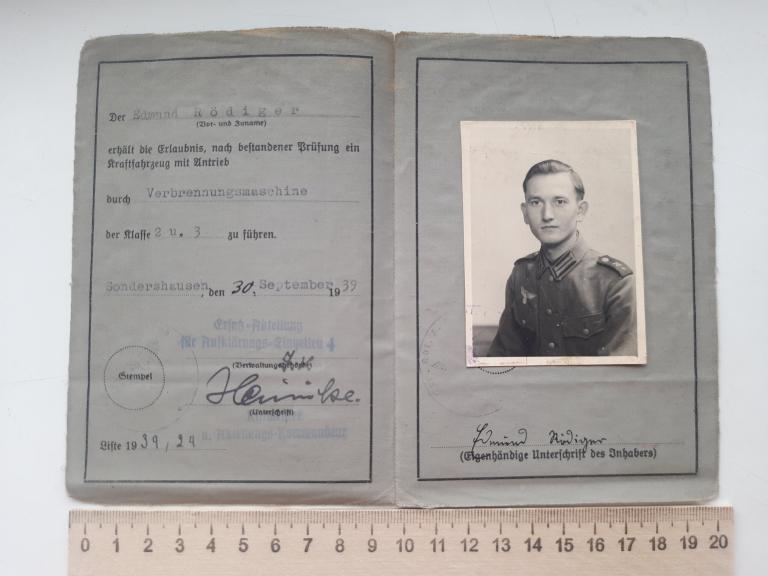 Der Edmund Rödiger
(Vor- und Zuname)
erhält die Erlaubnis, nach bestandener Prüfung ein
Kraftfahrzeug mit Antrieb
durch Verbrennungsmaschine
der Klasse 2 u. 3 zu führen.
Sondershausen, den 30. September 1939
Ersatz-Abteilung
für Aufklärungs-Einheiten 4
Stempel
(Unterschrift)
u. Abteilungs-Kommandeur
Liste 1939, 24
Edmund Rödiger
(Eigenhändige Unterschrift des Inhabers)
0 1 2 3 4 5 6 7 8 9 10 11 12 13 14 15 16 17 18 19 20